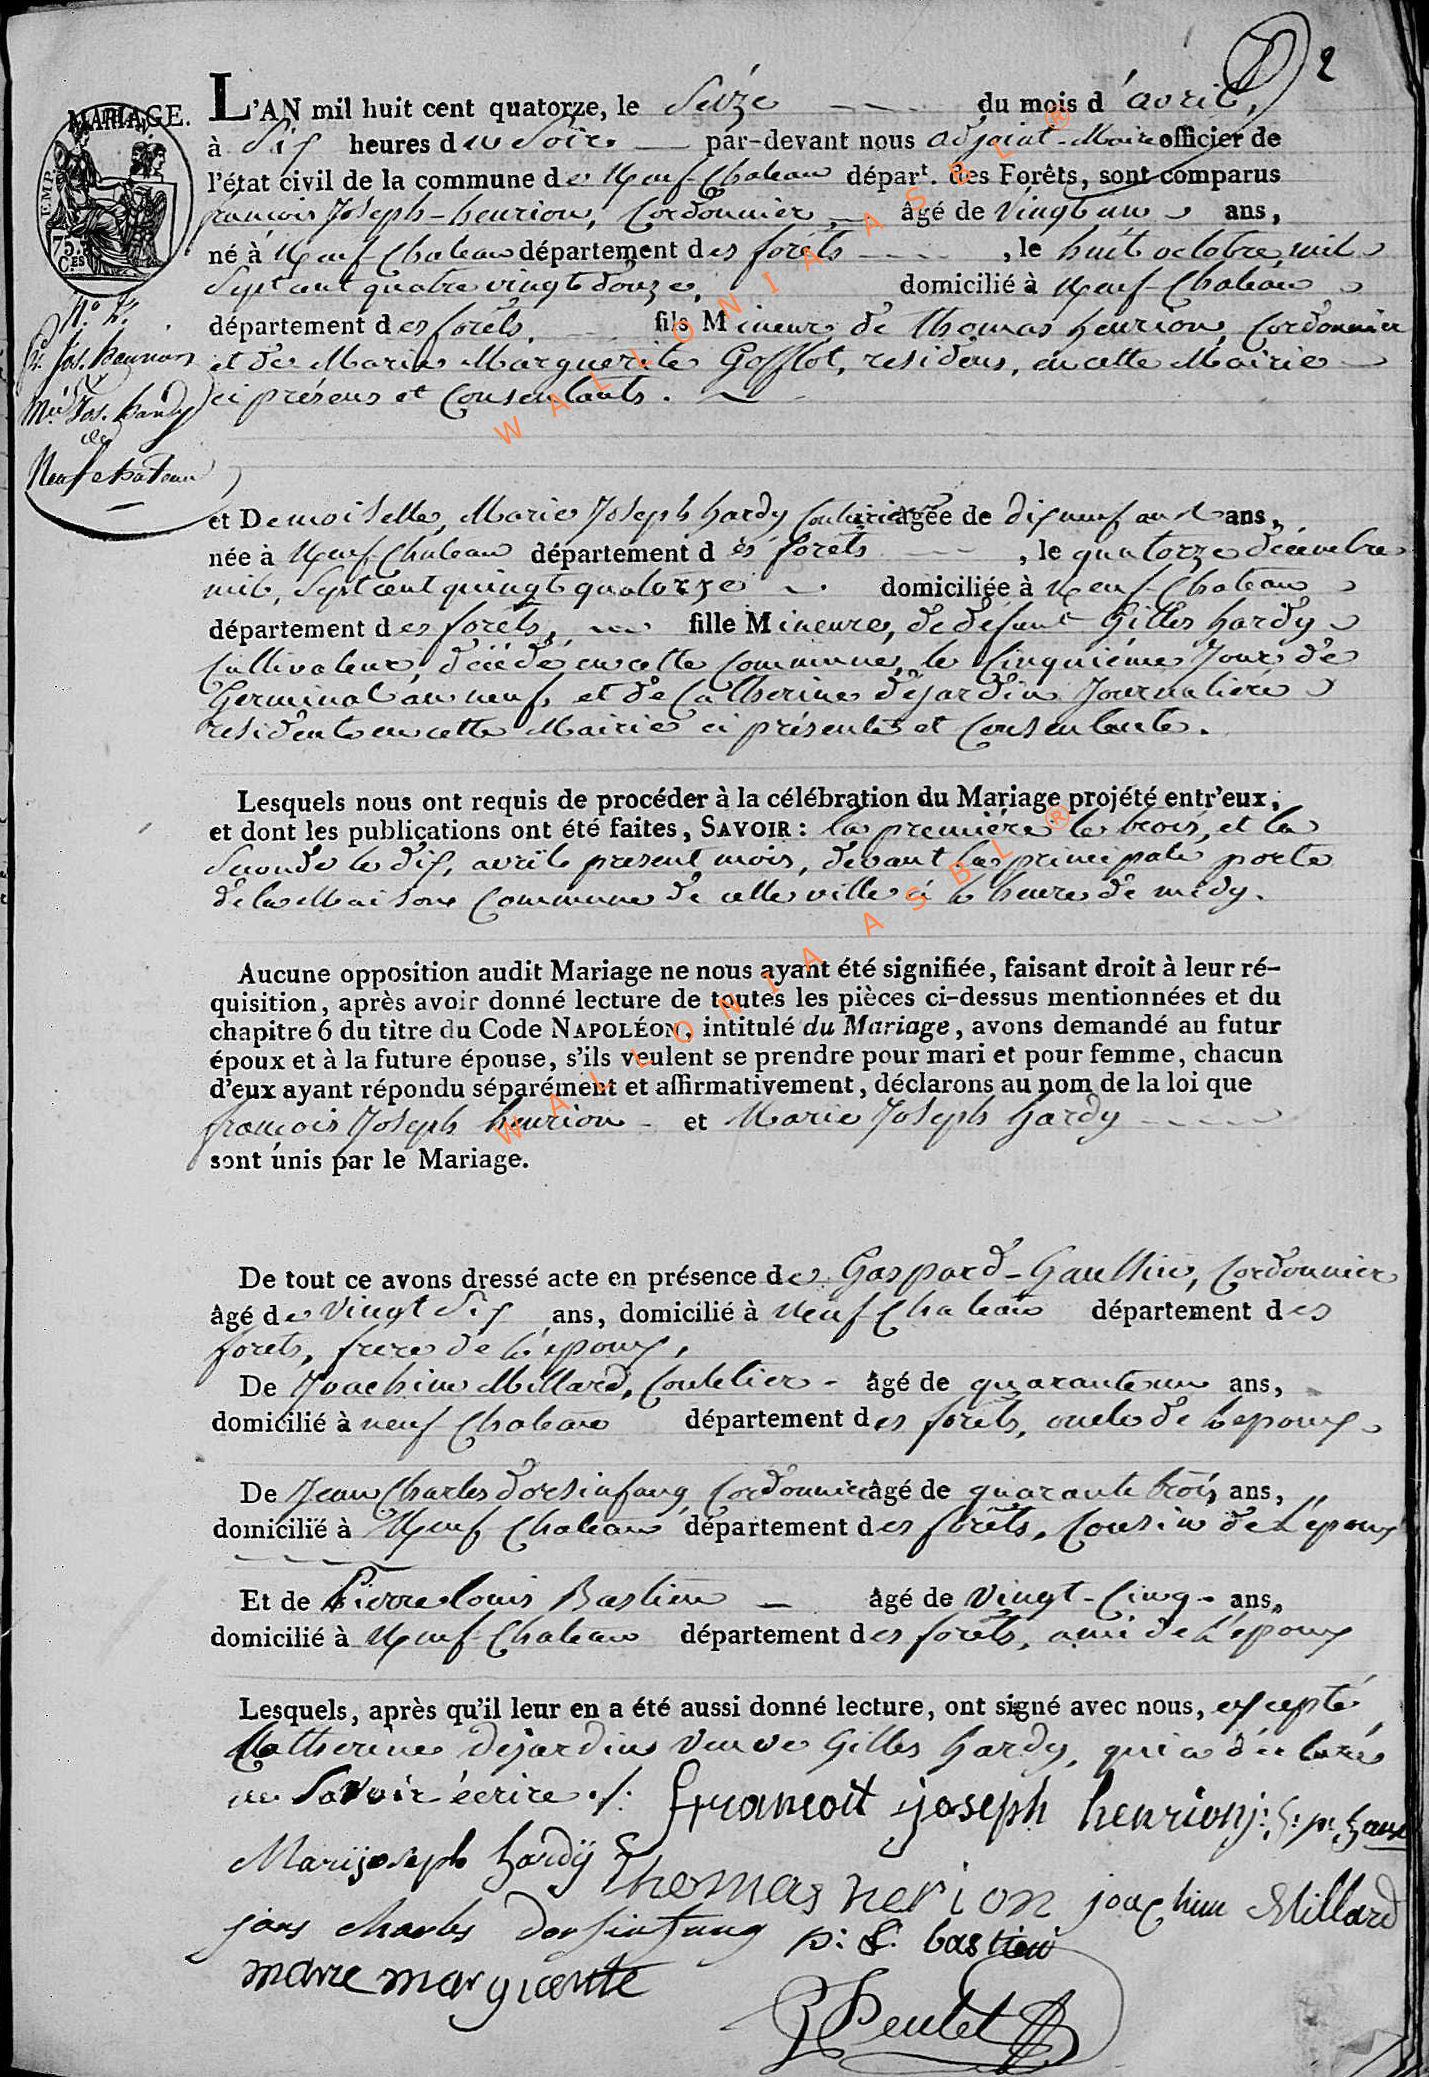 2
MARIAGE.
L'AN mil huit cent quatorze, le Seize du mois d'avril,
à Six heures du Soir par-devant nous adjoint-Maire officier de
l'état civil de la commune de Neuf-Chateau dépar.t des Forêts, sont comparus
francois Joseph-henrion, Cordonnier, âgé de Vingt un ans,
né à Neuf-Chateau département des forêts, le huit octobre mil
Sept cent quatre vingt douze, domicilié à Neuf-Chateau
département des forêts, fils Mineur, de Thomas henrion, Cordonnier
et de Marie Marguerite Gofflot, residens, en cette Mairie
ci présens et Consentants.
EMP.
75
C.ES
N.° 2.
Jos. hennion
&
Jos. hardy
de
Neufchateau
et Demoiselle, Marie Joseph hardy Couturiere âgée de dix neuf ans ans,
née à Neuf-Chateau département des forêts, le quatorze décembre
mil, Sept cent quingt quatorze domiciliée à Neuf-Chateau
département des forêts, fille Mineure, de défunt Gilles hardy
Cultivateur, décédé en cette Commune, le Cinquième Jour de
Germinal an neuf, et de Catherine déjardin Journaliére
residente en cette Mairie ci présente et Consentante.
Lesquels nous ont requis de procéder à la célébration du Mariage projété entr'eux,
et dont les publications ont été faites, SAVOIR : la premiére le trois, et la
Seconde le dix, avril present mois, devant la principale porte
de la Maison Commune de cette ville à l'heure de midy.
Aucune opposition audit Mariage ne nous ayant été signifiée, faisant droit à leur ré-
quisition, après avoir donné lecture de toutes les pièces ci-dessus mentionnées et du
chapitre 6 du titre du Code NAPOLÉON, intitulé du Mariage, avons demandé au futur
époux et à la future épouse, s'ils veulent se prendre pour mari et pour femme, chacun
d'eux ayant répondu séparément et affirmativement, déclarons au nom de la loi que
francois Joseph henrion - et Marie Joseph hardy
sont unis par le Mariage.
De tout ce avons dressé acte en présence de Gaspard-Gaultier, Cordonnier
âgé de Vingt Six ans, domicilié à Neuf Chateau département des
forets, frere de l'époux,
De Joachim Millard, Coutelier - âgé de quarante un ans,
domicilié à neuf Chateau département des forêts, oncle de l'epoux
De Jean Charles dorsinfang Cordonnier âgé de quarante trois ans,
domicilié à Neuf Chateau département des forêts, Cousin de l'epoux
Et de Pierre louis Bastien âgé de Vingt-Cinq - ans,
domicilié à Neuf-Chateau département des forêts, ami de l'époux
Lesquels, après qu'il leur en a été aussi donné lecture, ont signé avec nous, excepté
Catherine dejardin Veuve Gilles hardy, qui a déclaré
ne Savoir écrire ./.
francoit joseph henrion
Marijoseph hardÿ Thomas herion joachim Millard
jans charles dorsinfang p: L: bastien
marie margueritte
WALLONIA ASBL ®
WALLONIA ASBL ®